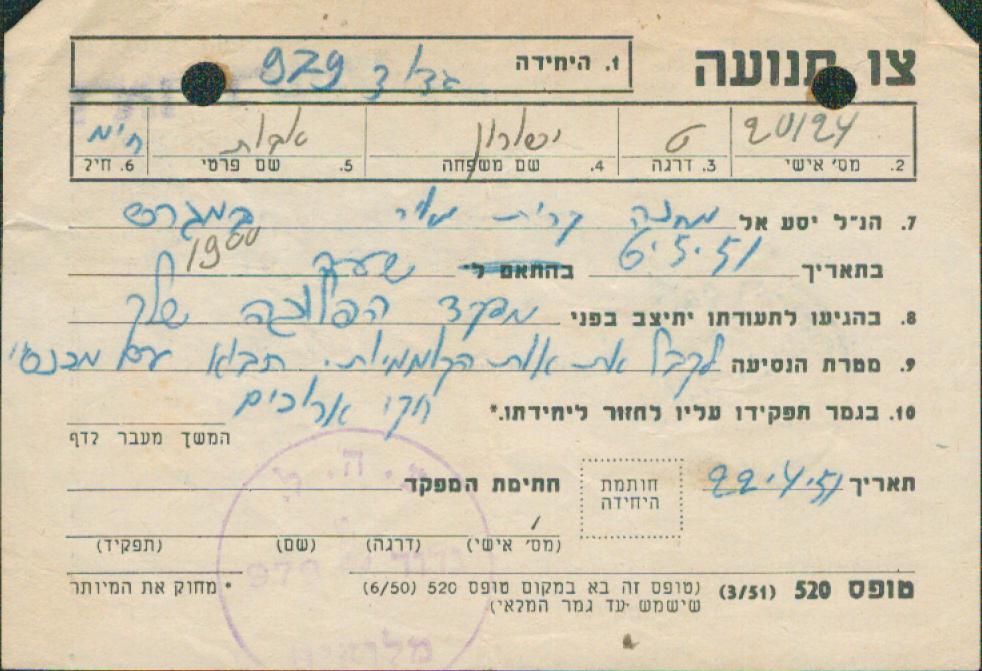 צו תנועה
1. היחידה גדוד 979
20124 ט ישורון אבות חי"מ
2. מס' אישי 3. דרגה 4. שם משפחה 5. שם פרטי 6. חיל
7. הנ"ל יסע אל מחנה קרית מאיר במגרש
בתאריך 6.5.51 בהתאם ל שעה 1900
8. בהגיעו לתעודתו יתיצב בפני מפקד הפלוגה שלך
9. מטרת הנסיעה לקבל את אות הקוממיות. תבוא עם מכנסי
חקי ארוכים
10. בגמר תפקידו עליו לחזור ליחידתו.*
המשך מעבר לדף
תאריך 22.4.51 חותמת היחידה חתימת המפקד
(מס' אישי) (דרגה) (שם) (תפקיד)
צ.ה.ל.
גדוד מס 979
מלואים
טופס 520 (3/51) (טופס זה בא במקום טופס 520 (6/50) שישמש עד גמר המלאי)
* מחוק את המיותר